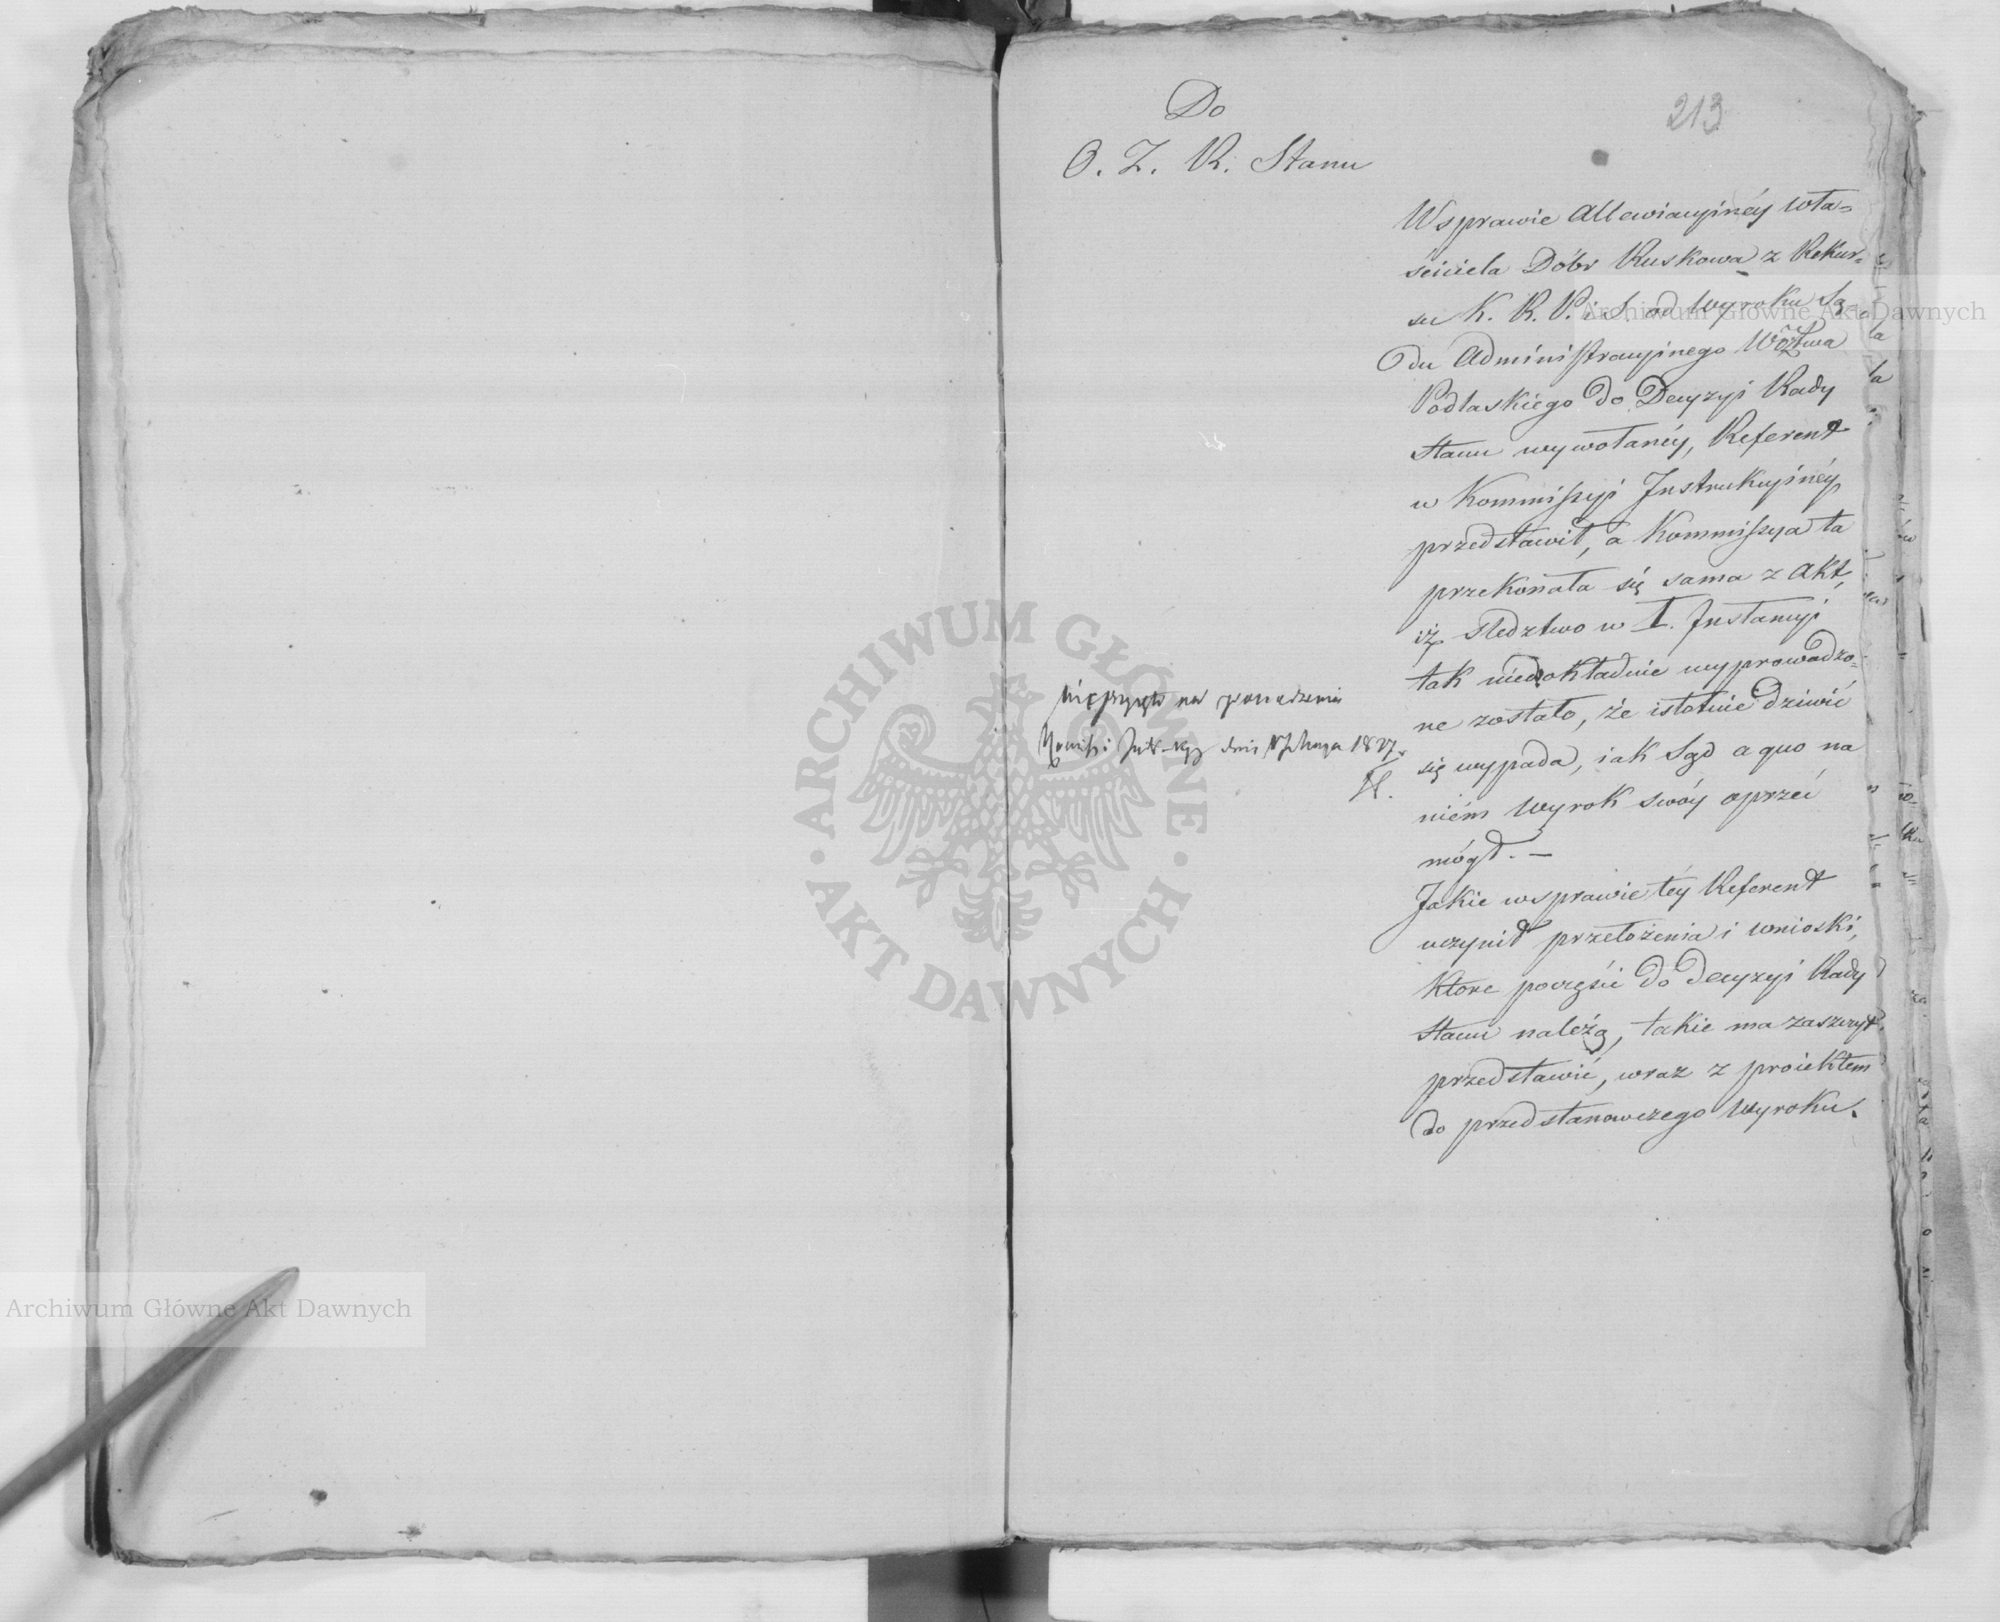 213
Do
O. Z. R. Stanu
W sprawie Allewiacyinéy wła=
ściciela Dóbr Ruskowa z Rekur=
su K. R. P. i S. od Wyroku Są=
du Administracyinego Wöztwa
Podlaskiego do Decyzyi Rady
Stanu wywołanéy, Referent
w Kommissyi Instrukcyinéy
przedstawił, a Kommissya ta
przekonała się sama z akt,
iż śledztwo w I. Instancyi
tak niedokładnie wyprowadzo=
ne zostało, że istotnie dziwić
się wypada, iak Sąd a quo na
niém Wyrok swóy oprzeć
mógł. —
Jakie w sprawie téy Referent
uczynił przełożenia i wnioski,
które poczęści do decyzyi Rady
Stanu należą, takie ma zaszczyt
przedstawić, wraz z proiektem
do przedstanowczego Wyroku.
przyięto na posiedzeniu
dnia Maja 1827.
ARCHIWUM GŁÓWNE
AKT DAWNYCH
Archiwum Główne Akt Dawnych
Archiwum Główne Akt Dawnych